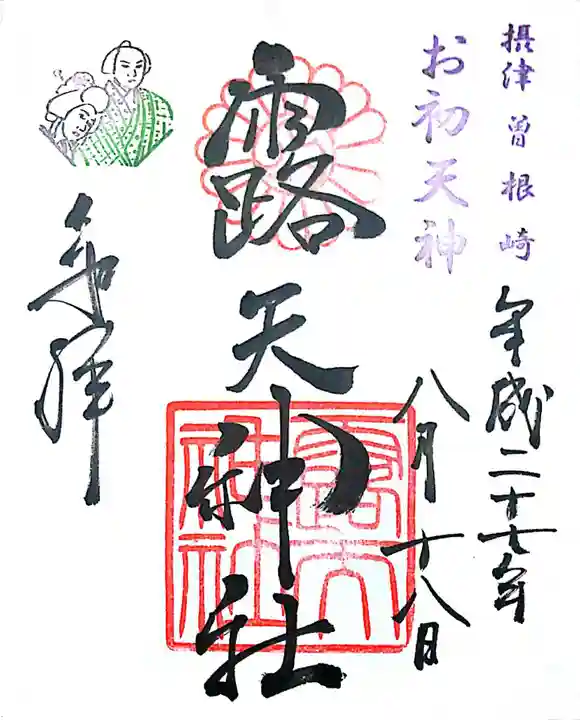 摂津 曽根崎
お初天神
平成二十七年
八月十八日
露天神社
奉拝
露天
神社